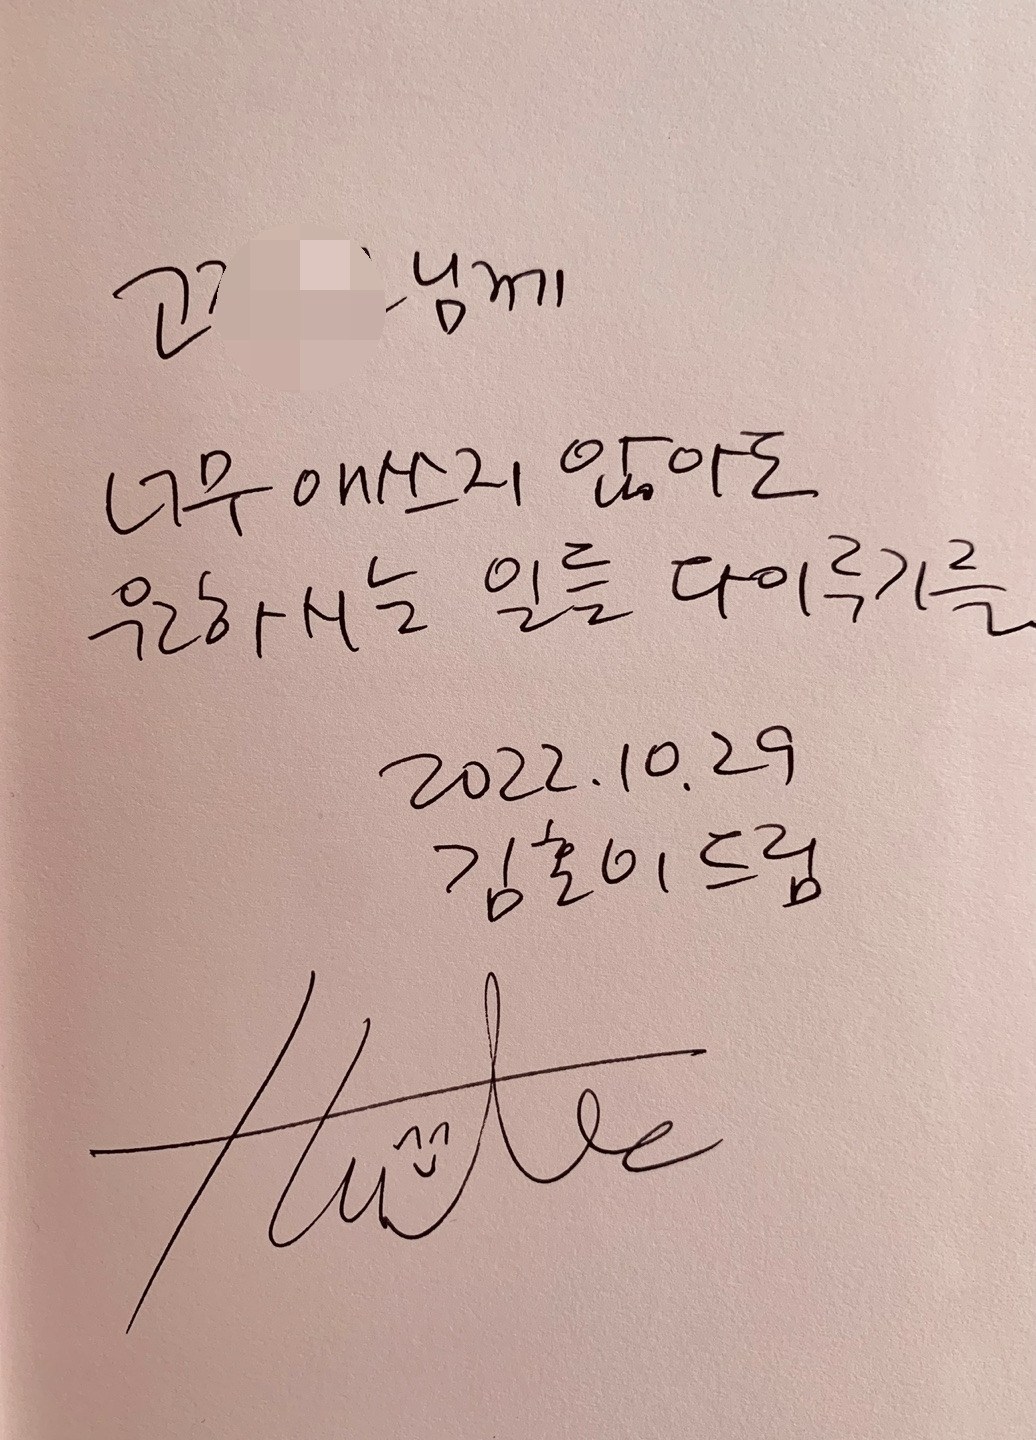 고 님께
너무 애쓰지 않아도
원하시는 일들 다이루기를
2022.10.29
김호이 드림